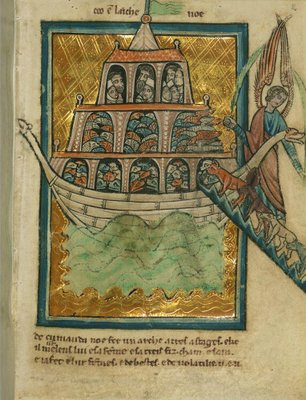 coo e larche noe
de cumandu noe fere un arche atres astages. eke
il meteist lui esa feme esa treis fiz. cham. esem.
e iafet elur femes. edebestes. ede volatilie